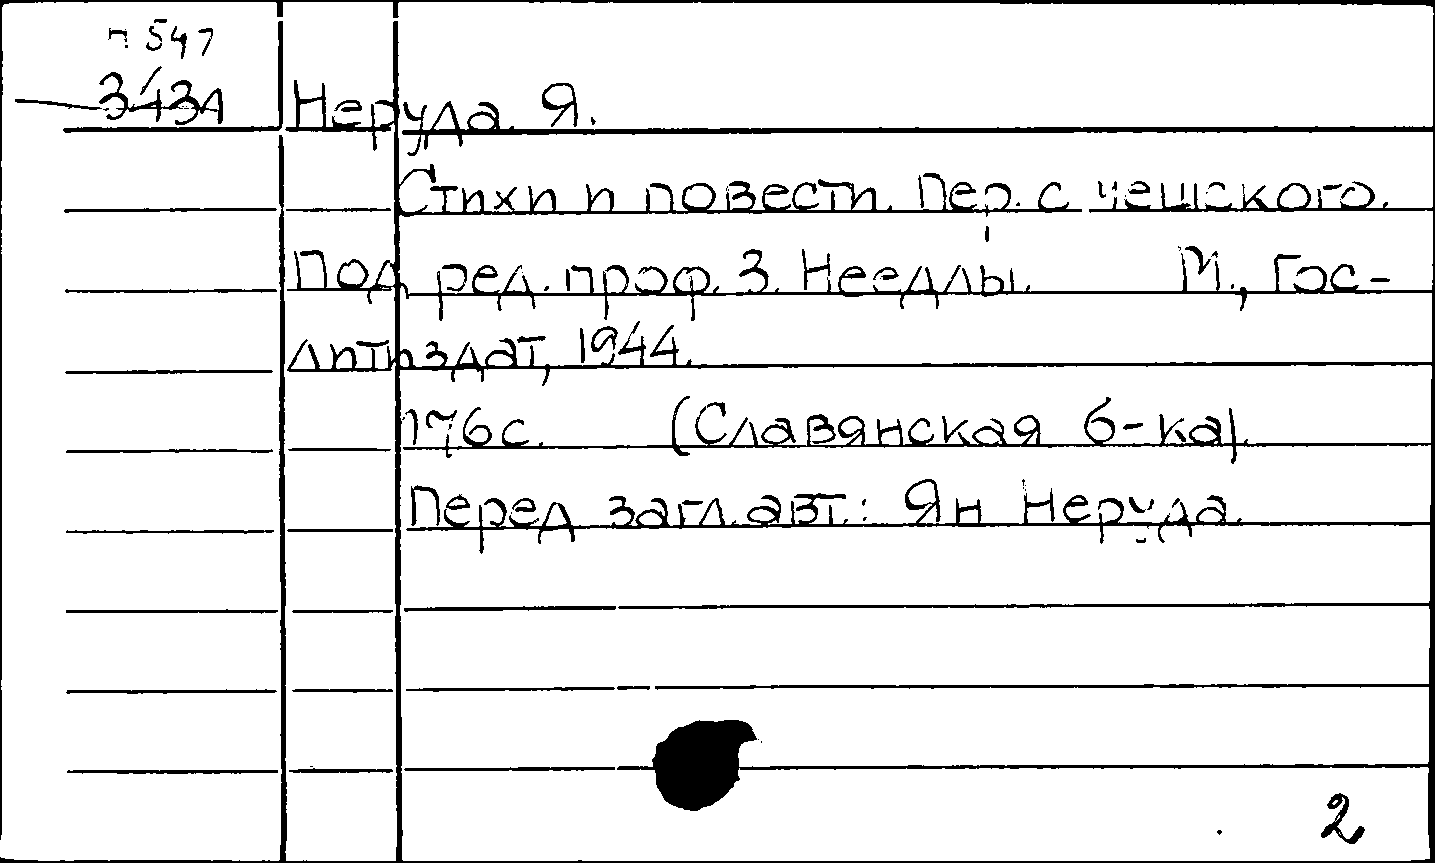 п 547
3434 Неруда Я.
Стихи и повести. Пер. с чешского.
Под ред. проф. З. Неедлы. М., Гос-
литиздат, 1944.
176 с. (Славянская б-ка).
Перед загл. авт.: Ян Неруда.
2